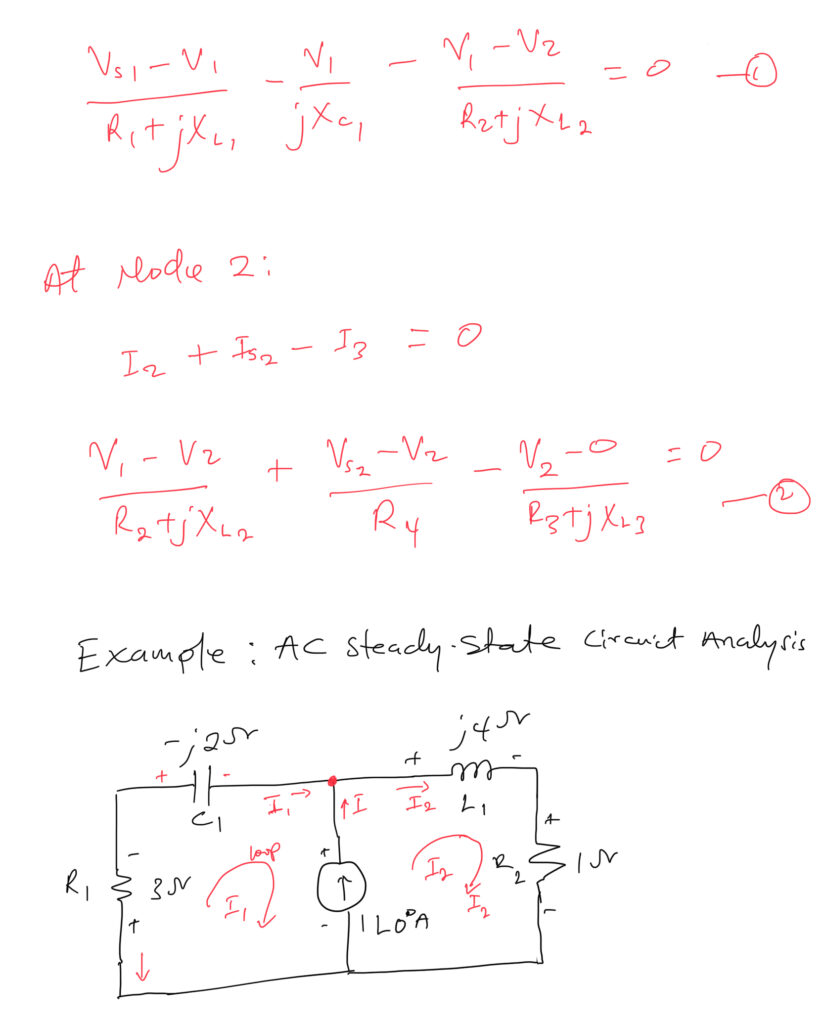 (Vs1 - V1)/(R1 + jXL1) - V1/(jXC1) - (V1 - V2)/(R2 + jXL2) = 0 —①
At Node 2:
I2 + Is2 - I3 = 0
(V1 - V2)/(R2 + jXL2) + (Vs2 - V2)/R4 - (V2 - 0)/(R3 + jXL3) = 0 —②
Example : AC Steady-State Circuit Analysis
-j2Ω
j4Ω
+ -
+ -
C1
I1 →
↑I
I2 →
L1
loop
-
+
+
R1
3Ω
I1
I2
R2
1Ω
I2
+
-
1∠0°A
-